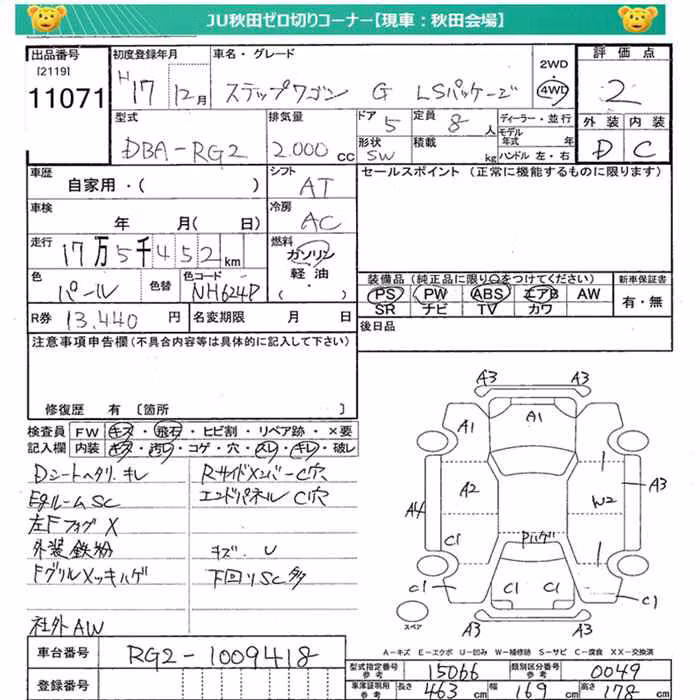 JU秋田ゼロ切りコーナー【現車：秋田会場】
出品番号 初度登録年月 車名・グレード 2WD 評価点
[2119] 11071 H17 12月 ステップワゴン G LSパッケージ 4WD 2
型式 排気量 ドア 5 定員 8人 ディーラー・並行 外装 内装
DBA-RG2 2.000cc 形状 SW 積載 kg モデル年式 年 ハンドル 左・右 D C
車歴 シフト セールスポイント（正常に機能するものに限ります）
自家用・( ) AT
車検 冷房
年 月( 日) AC
走行 燃料
17万5千452km ガソリン
色 色替 色コード 軽油 装備品（純正品に限り○をつけてください） 新車保証書
パール NH624P ・( ) PS PW ABS エアB AW 有・無
SR ナビ TV カワ
R券 13,440 円 名変期限 月 日 後日品
注意事項申告欄（不具合内容等は具体的に記入して下さい）
修復歴 有 〔箇所 〕
検査員 FW キズ・飛石・ヒビ割・リペア跡・×要
記入欄 内装 キズ・汚レ・コゲ・穴・スレ・キレ・破レ
Dシートヘタリ、キレ RサイドメンバーC穴
EgルームSC エンドパネルC穴
左Fフォグ X
外装鉄粉 キズ、U
Fグリルメッキハゲ 下回りSC多
社外AW
A3 A3
A1 A1
A2 A3
A4 W2
C1 Pハゲ
C1 C1 C1 C1
スペア A3 A3
A―キズ E―エクボ U―凹み W―補修跡 S―サビ C―腐食 XX―交換済
車台番号 RG2-1009418
型式指定番号 参考 15066 類別区分番号 参考 0049
登録番号 車庫証明用 参考 長さ 463cm 幅 169cm 高さ 178cm